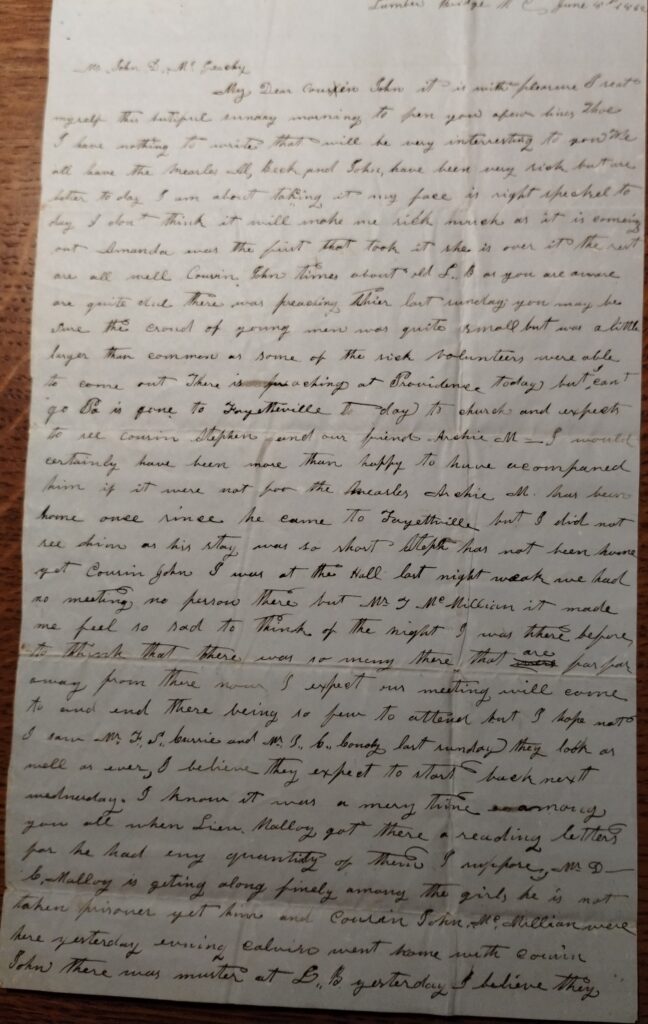 Lumber Bridge N C, June 4th 1862
Mr John D, Mc Geachy
My Dear Cousin John it is with pleasure I seat
myself this butiful sunday morning to pen you afew lines Thoe
I have nothing to write that will be very interresting to you We
all have the Measles Al, Beck and John, have been very sick but are
better to day I am about taking it my face is right speckel to
day I dont think it will make me sick much as it is coming
out Amanda was the first that took it she is over it the rest
are all well Cousin John times about old L,, B as you are aware
are quite dul there was preaching thier last sunday you may be
sure the croud of young men was quite small but was a little
larger than common as some of the sick volunteers were able
to come out There is preaching at Providence today but I cant
go Pa is gone to Fayetteville to day to church and expects
to see cousin Stephen and our friend Archie M — I would
certainly have been more than happy to have acompaned
him if it were not for the Measles Archie M. has been
home once since he came to Fayettville but I did not
see him as his stay was so short Steph has not been home
yet Cousin John I was at the Hall last night weak we had
no meeting no person there but Mr J McMillian it made
me feel so sad to think of the night I was there before
to think that there was so meny there that are far far
away from there now I expect our meeting will come
to and end there being so few to attend but I hope not
I saw Mr. F, S,, Currie and Mr. J,, C,, Conoly last sunday they look as
well as ever, I believe they expect to start back nextt
wednesday. I know it was a mery time among
you all when Lieu. Malloy got there a reading letters
for he had eny quantity of them I suppose, Mr. D—
C, Malloy is geting along finely among the girls he is not
taken prisoner yet him and Cousin John, Mc,Millian were
here yesterday evening calvin went home with cousin
John there was muster at L,, B yesterday I believe they